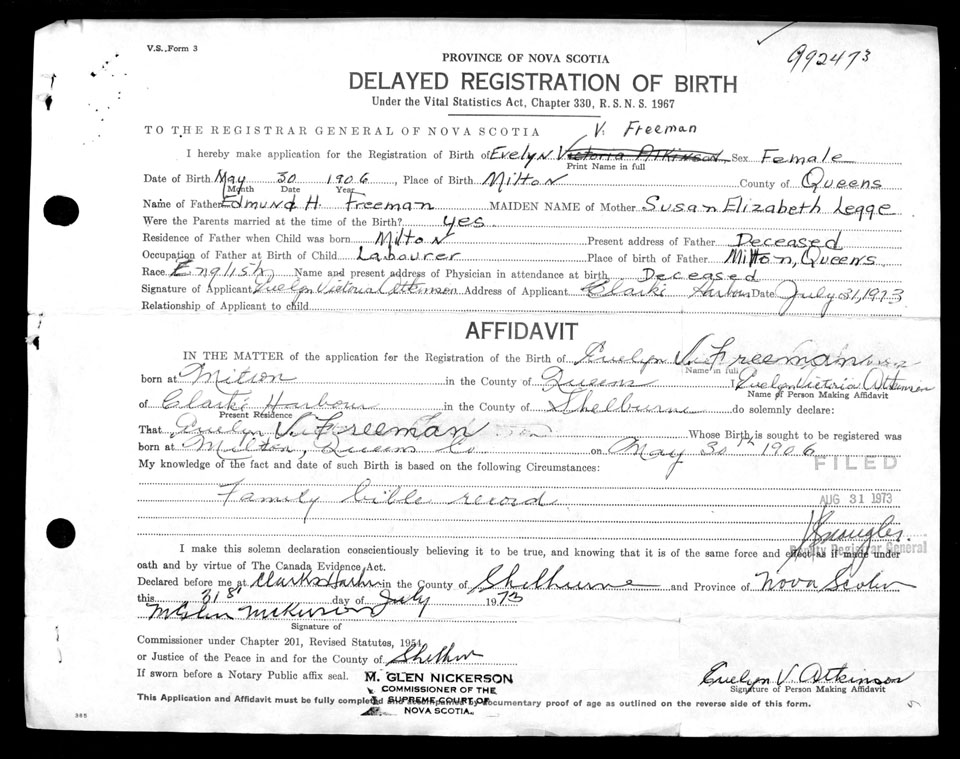 V.S. Form 3
992473
PROVINCE OF NOVA SCOTIA
DELAYED REGISTRATION OF BIRTH
Under the Vital Statistics Act, Chapter 330, R.S.N.S. 1967
TO THE REGISTRAR GENERAL OF NOVA SCOTIA V. Freeman
I hereby make application for the Registration of Birth of Evelyn Victoria Atkinson Sex Female
Print Name in full
Date of Birth May 30 1906, Place of Birth Milton County of Queens
Month Date Year
Name of Father Edmund H. Freeman MAIDEN NAME of Mother Susan Elizabeth Legge
Were the Parents married at the time of the Birth? yes
Residence of Father when Child was born Milton Present address of Father Deceased
Occupation of Father at Birth of Child Labourer Place of birth of Father Milton, Queens
Race English Name and present address of Physician in attendance at birth Deceased
Signature of Applicant Evelyn Victoria Atkinson Address of Applicant Clarks Harbour Date July 31, 1973
Relationship of Applicant to child
AFFIDAVIT
IN THE MATTER of the application for the Registration of the Birth of Evelyn V. Freeman
Name in full
born at Milton in the County of Queens I Evelyn Victoria Atkinson
Name of Person Making Affidavit
of Clarks Harbour in the County of Shelburne do solemnly declare:
Present Residence
That Evelyn V. Freeman Whose Birth is sought to be registered was
born at Milton, Queens Co on May 30th 1906
My knowledge of the fact and date of such Birth is based on the following Circumstances:
FILED
Family bible record
AUG 31 1973
Deputy Registrar General
I make this solemn declaration conscientiously believing it to be true, and knowing that it is of the same force and effect as if made under
oath and by virtue of The Canada Evidence Act.
Declared before me at Clarks Harbour in the County of Shelburne and Province of Nova Scotia
this 31st day of July 1973
M Glen Nickerson
Signature of
Commissioner under Chapter 201, Revised Statutes, 1954
or Justice of the Peace in and for the County of Shelburne
If sworn before a Notary Public affix seal.
M. GLEN NICKERSON
COMMISSIONER OF THE
SUPREME COURT OF
NOVA SCOTIA
Evelyn V. Atkinson
Signature of Person Making Affidavit
This Application and Affidavit must be fully completed and accompanied by documentary proof of age as outlined on the reverse side of this form.
385